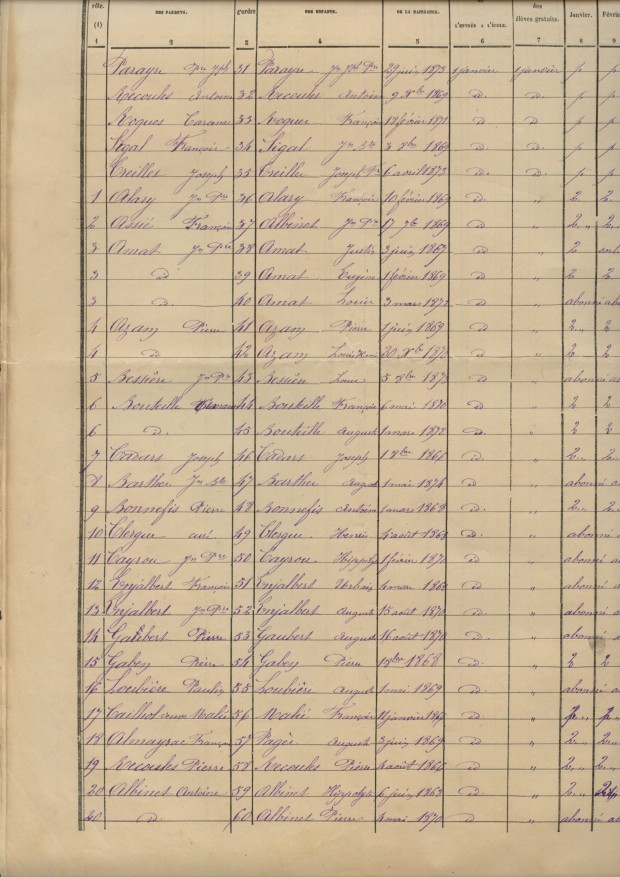 rôle. DES PARENTS. d'ordre DES ENFANTS. DE LA NAISSANCE. L'ENTRÉE A L'ÉCOLE. des élèves gratuits. Janvier. Févrie
(1)
1 2 3 4 5 6 7 8 9
31 29 juin 1873 1 janvier 1 janvier p p
Recoules Antoine 32 Recoules Antoine 9 Xbre 1869 d° d° p p
Rogues 33 Rogues François 12 février 1871 d° d° p p
Sigal François 34 Sigal 1869 d° d° p p
Treilles Joseph 35 Treilles Joseph 6 avril 1873 d° d° p p
1 Alary Jn Pre 36 Alary François 10 février 1869 d° " 2 2
2 Assié François 37 Albinet Jn Pre 17 1869 d° " 2 " 2
3 Amat Jn Pre 38 Amat Justin 3 juin 1867 d° " 2
3 d° 39 Amat Eugène 1 février 1869 d° " 2 2
3 d° 40 Amat Louis 3 mars 1872 d° " abonné ab
4 Azam Pierre 41 Azam Pierre 1 juin 1869 d° " 2 " 2
4 d° 42 Azam 20 Xbre 1870 d° " 2 " 2
5 Bessière Jn Pre 43 Bessière Louis 5 1873 d° " abonné a
6 Bouteille 44 Bouteille François 6 mai 1870 d° " 2 2
6 d° 45 Bouteille August 1 mars 1872 d° " 2 2
7 Cadars Joseph 46 Cadars Joseph d° " 2 " 2
8 Barthe Jn 47 Barthe August 1 mai 1874 d° " abonné a
9 Bonnefis Pierre 48 Bonnefis Antoine 1 mars 1868 d° " 2 " 2
10 Clergue curé 49 Clergue Henri 4 août d° " abonné a
11 Cayrou Jn Pre 50 Cayrou Hippolyte 1 février 1870 d° " abonné a
12 Enjalbert François 51 Enjalbert Urbain 4 mars d° " abonné a
13 Enjalbert Jn Pre 52 Enjalbert August 15 août 1870 d° " abonné a
14 Gaubert Pierre 53 Gaubert August 16 août 1870 d° " abonné a
15 Gaben Pierre 54 Gaben Pierre 1868 d° " 2 2
16 Loubière Paulin 55 Loubière August 1 mai 1869 d° " abonné a
17 56 Malié François 11 janvier d° " p " p
18 Almayrac François 57 Pagès August 3 juin 1869 d° " 2 " 2
19 Recoules Pierre 58 Recoules Pierre 4 août 1866 d° " 2 " 2
20 Albinet Antoine 59 Albinet Hippolyte 6 juin d° " 2 "
20 d° 60 Albinet Pierre 4 mai 1870 d° " abonné a